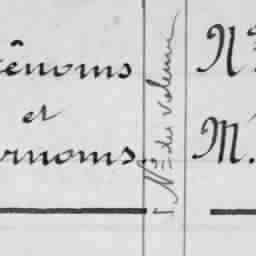 rênoms
et
urnoms.
N° du volume
N°
M.